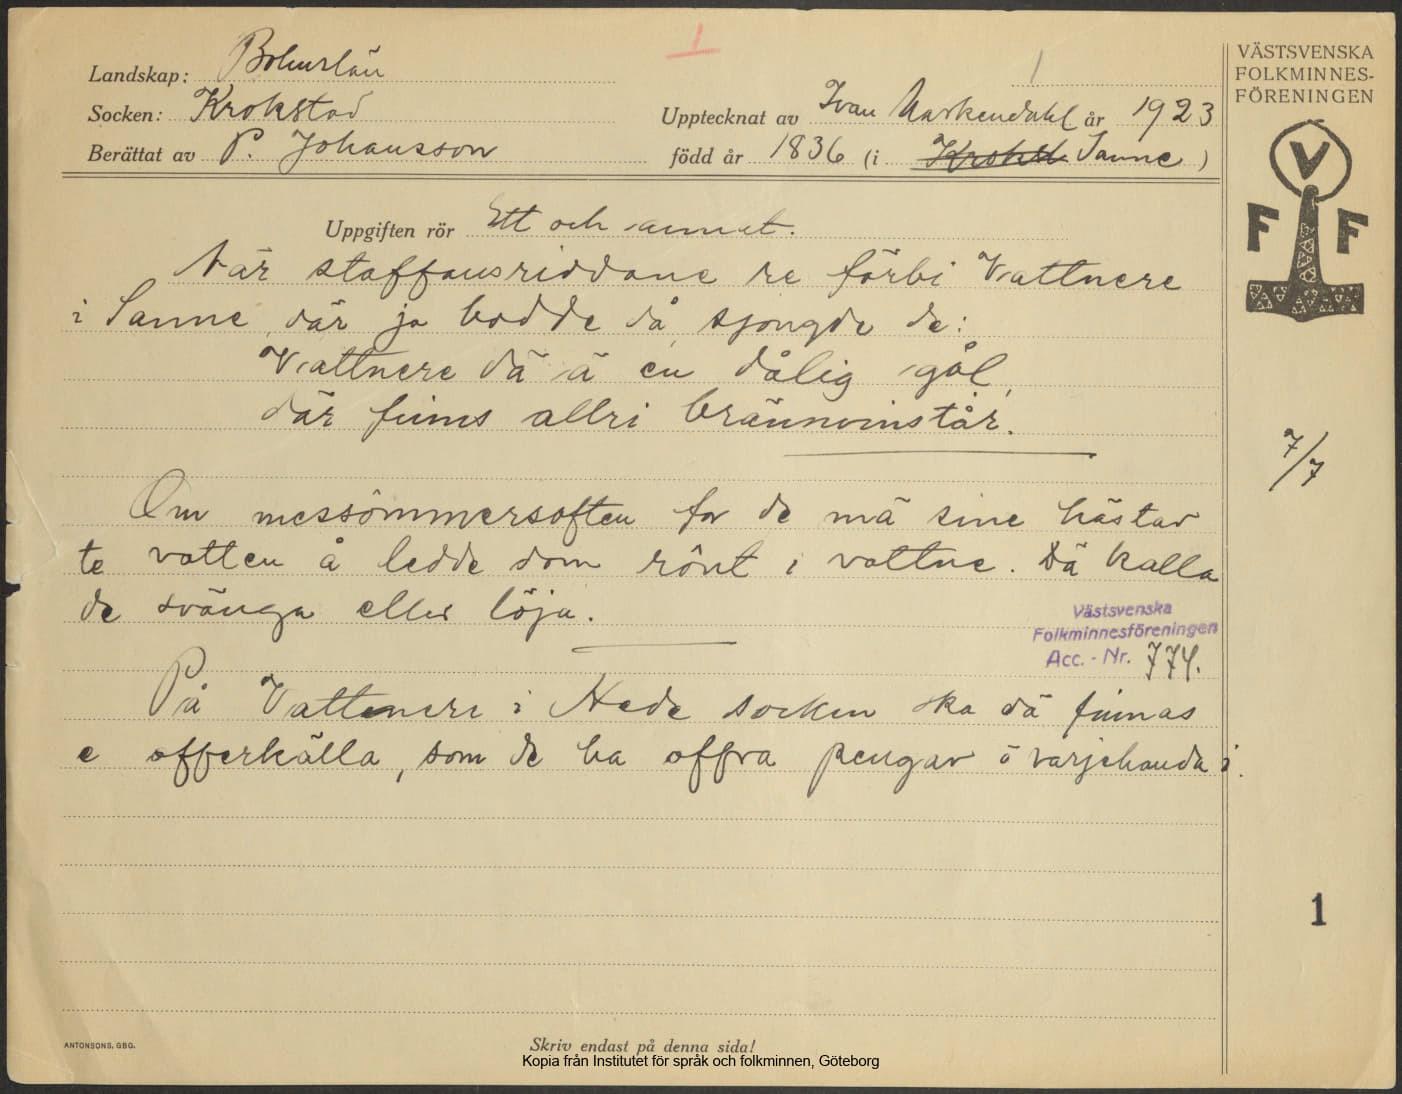 1
1
Landskap: Bohuslän
Socken: Krokstad
Berättat av P. Johansson
Upptecknat av Ivan Markendahl år 1923
född år 1836 (i Sanne)
VÄSTSVENSKA
FOLKMINNES-
FÖRENINGEN
V
F F
Uppgiften rör Ett och annat.
När staffansriddane re förbi Vattnere
i Sanne, där ja bodde då, sjongde de:
Vattnere dä ä en dålig gål,
där finns allri brännvinstår.
7/7
Om messömmersaften for de mä sine hästar
te vatten å ledde dom rönt i vattne. Dä kalla
de svänga eller löja.
Västsvenska
Folkminnesföreningen
Acc. - Nr. 774.
På Vattenere i Hede socken ska dä finnas
e offerkälla, som de ha offra pengar å varjehanda i.
1
ANTONSONS, GBG.
Skriv endast på denna sida!
Kopia från Institutet för språk och folkminnen, Göteborg